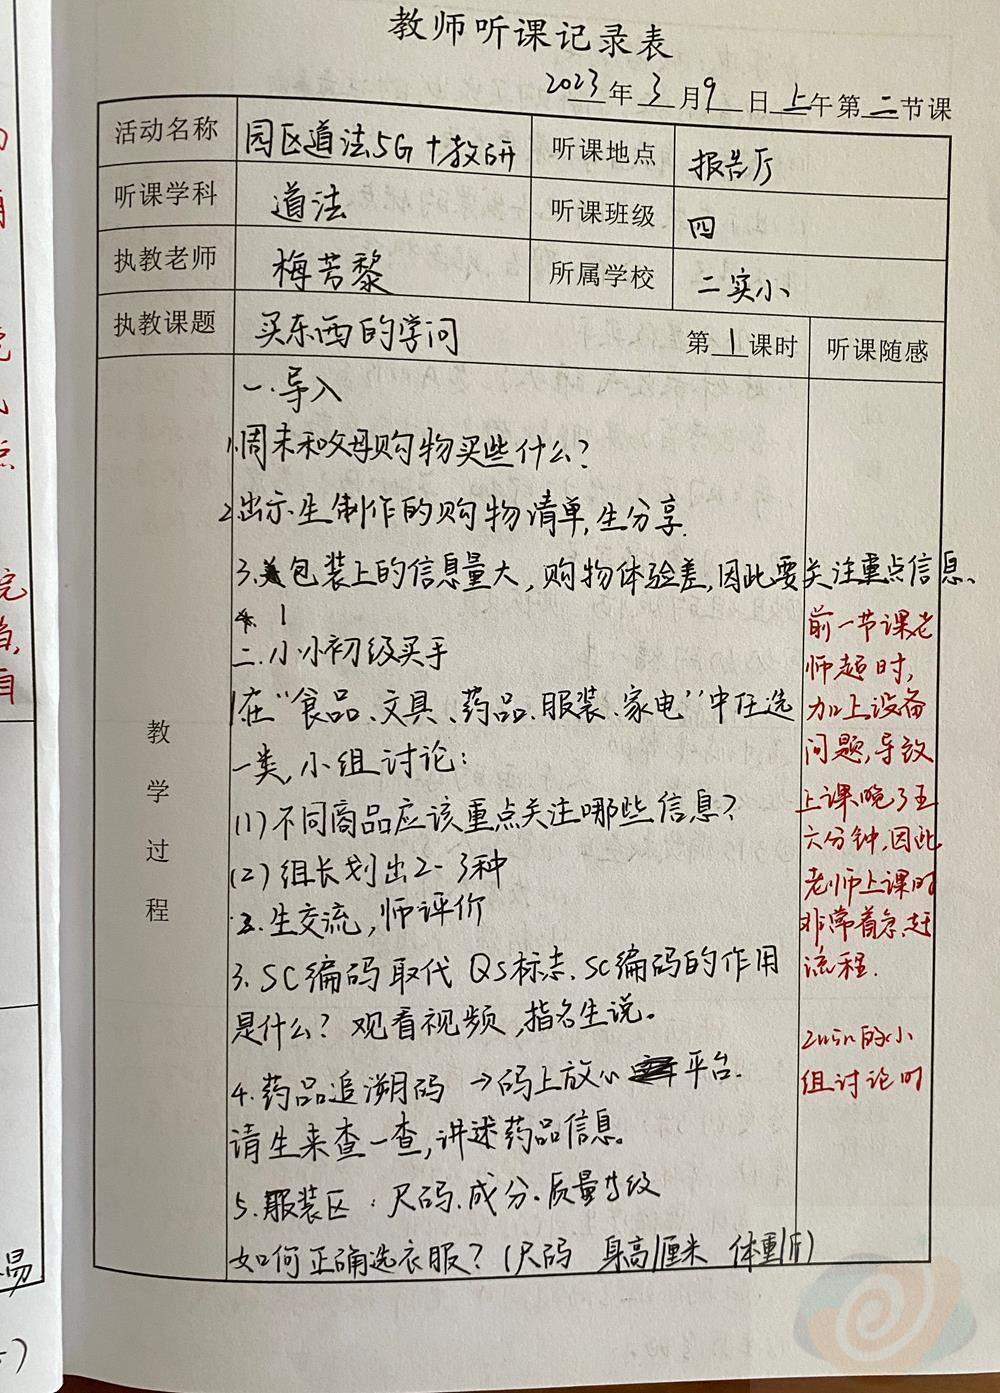 教师听课记录表
2023年3月9日上午第二节课
活动名称 园区道法5G+教研 听课地点 报告厅
听课学科 道法 听课班级 四
执教老师 梅芳黎 所属学校 二实小
执教课题 买东西的学问 第1课时 听课随感
教学过程
一.导入
1.周末和父母购物买些什么?
2.出示生制作的购物清单,生分享.
3.包装上的信息量大,购物体验差,因此要关注重点信息.
二.小小初级买手
1在“食品、文具、药品.服装.家电”中任选
一类,小组讨论:
(1)不同商品应该重点关注哪些信息?
(2)组长划出2-3种
2.生交流,师评价
3.SC编码取代QS标志.SC编码的作用
是什么?观看视频,指名生说。
4.药品追溯码→码上放心平台.
请生来查一查,讲述药品信息。
5.服装区:尺码.成分.质量等级
如何正确选衣服?(尺码 身高/厘米 体重/斤)
前一节课老
师超时,
加上设备
问题,导致
上课晚了五
六分钟,因此
老师上课时
非常着急,赶
流程.
2min的小
组讨论时
易